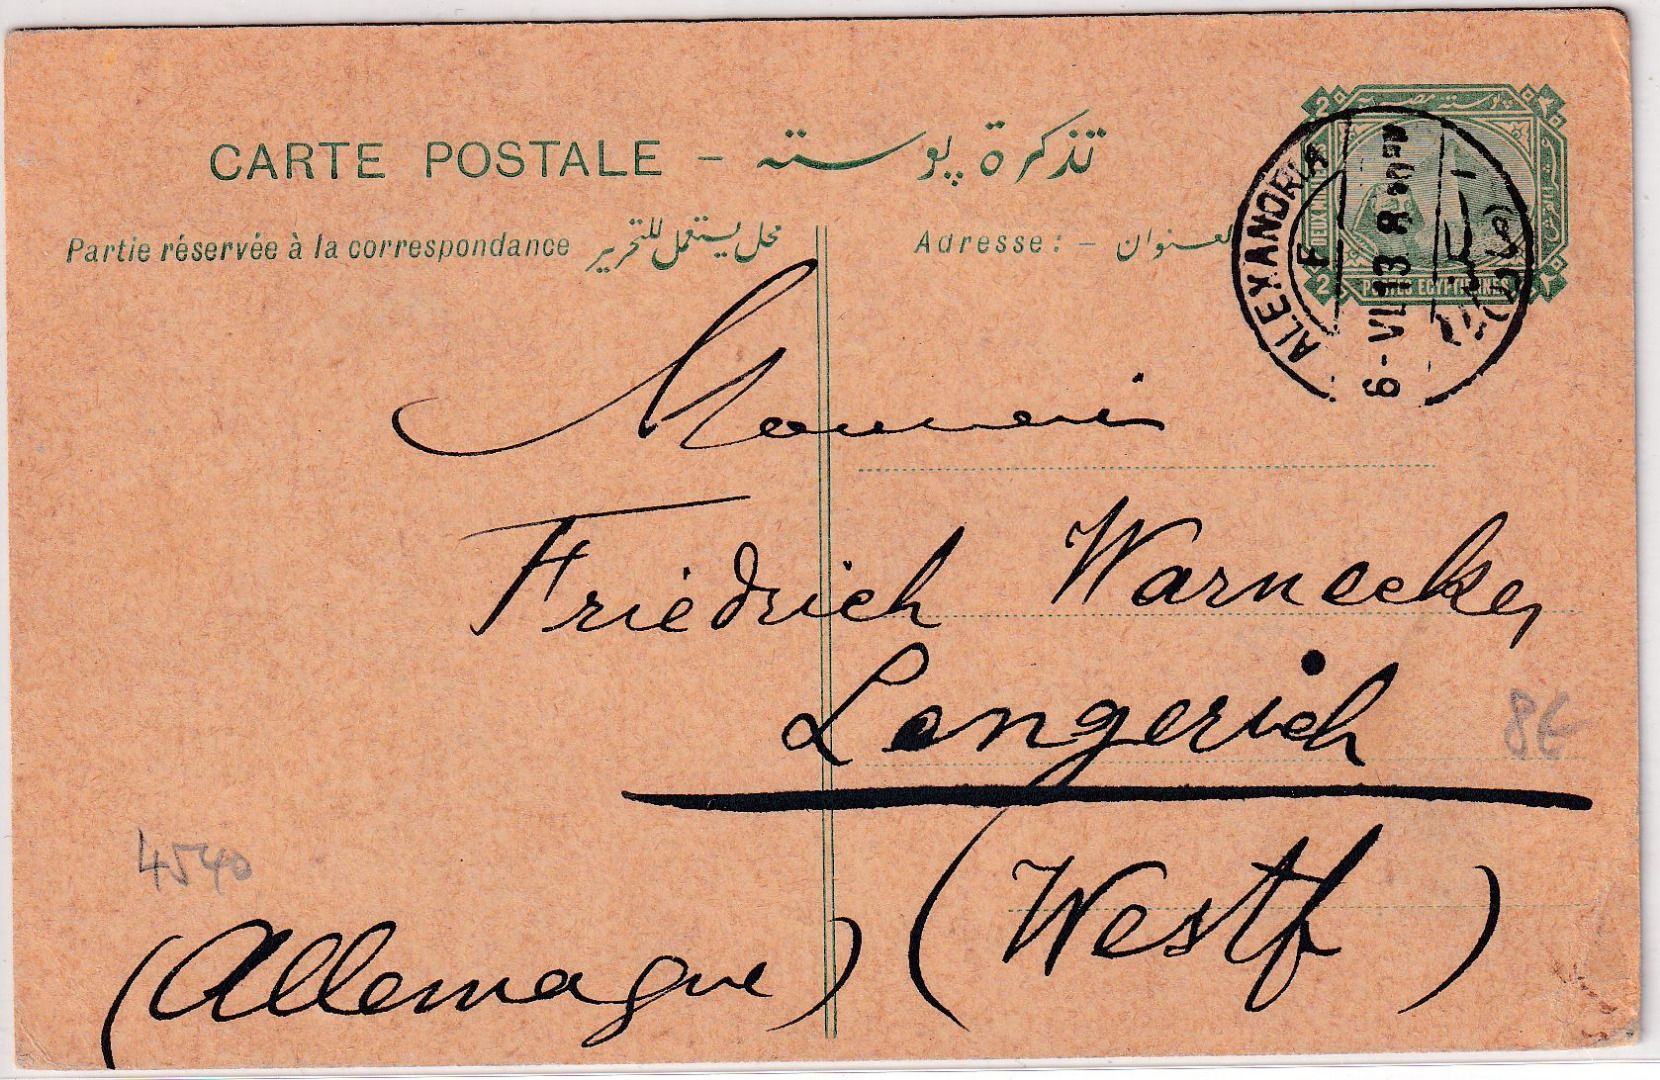 CARTE POSTALE - تذكرة پوسته
Partie réservée à la correspondance محل يستعمل للتحرير
Adresse: - العنوان
2 2
بوستة مصرية
DEUX MILLIEMES
POSTES EGYPTIENNES
ALEXANDRIA
F
6-VI.13 8
Monsieur
Friedrich Warnecke,
Lengerich
8€
4540
(Westf)
(Allemagne)